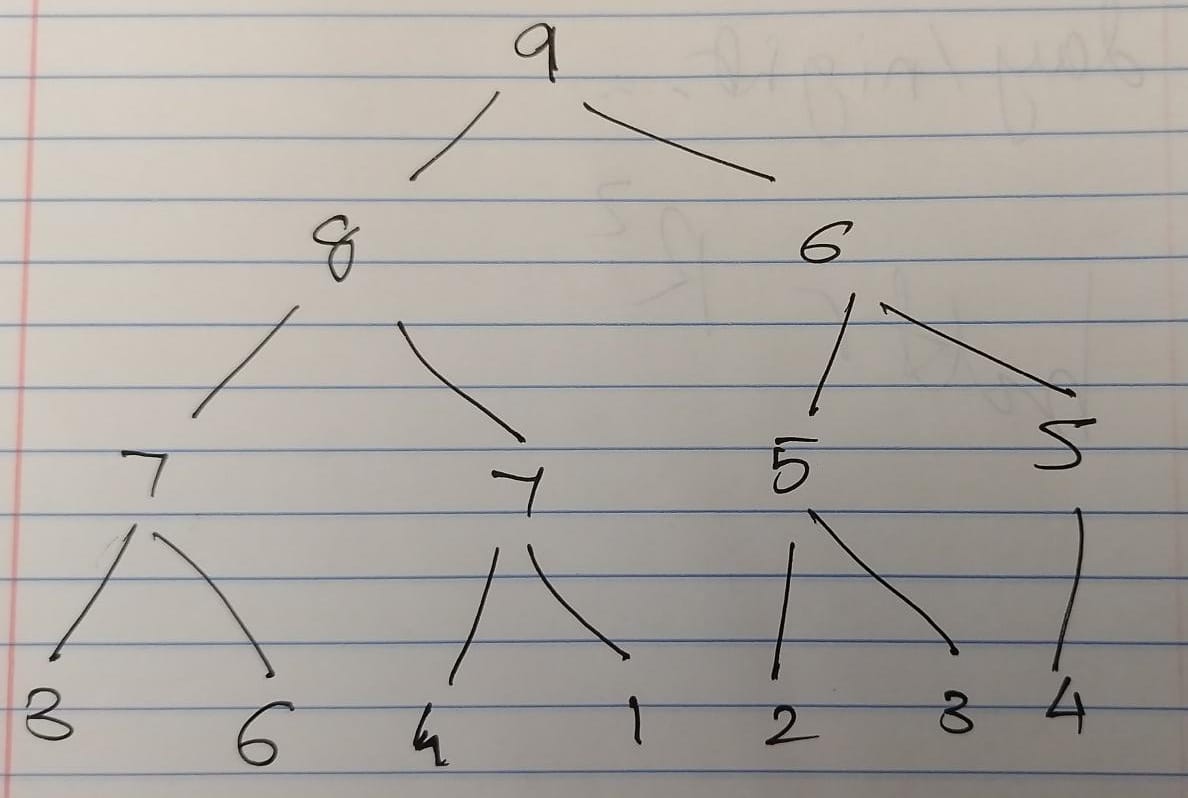 9
8 6
7 7 5 5
3 6 4 1 2 3 4